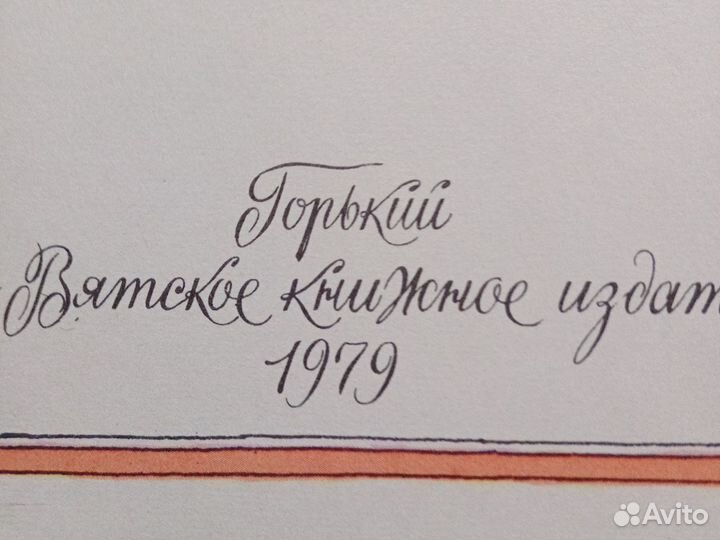 Горький
Вятское книжное издат
1979
Avito